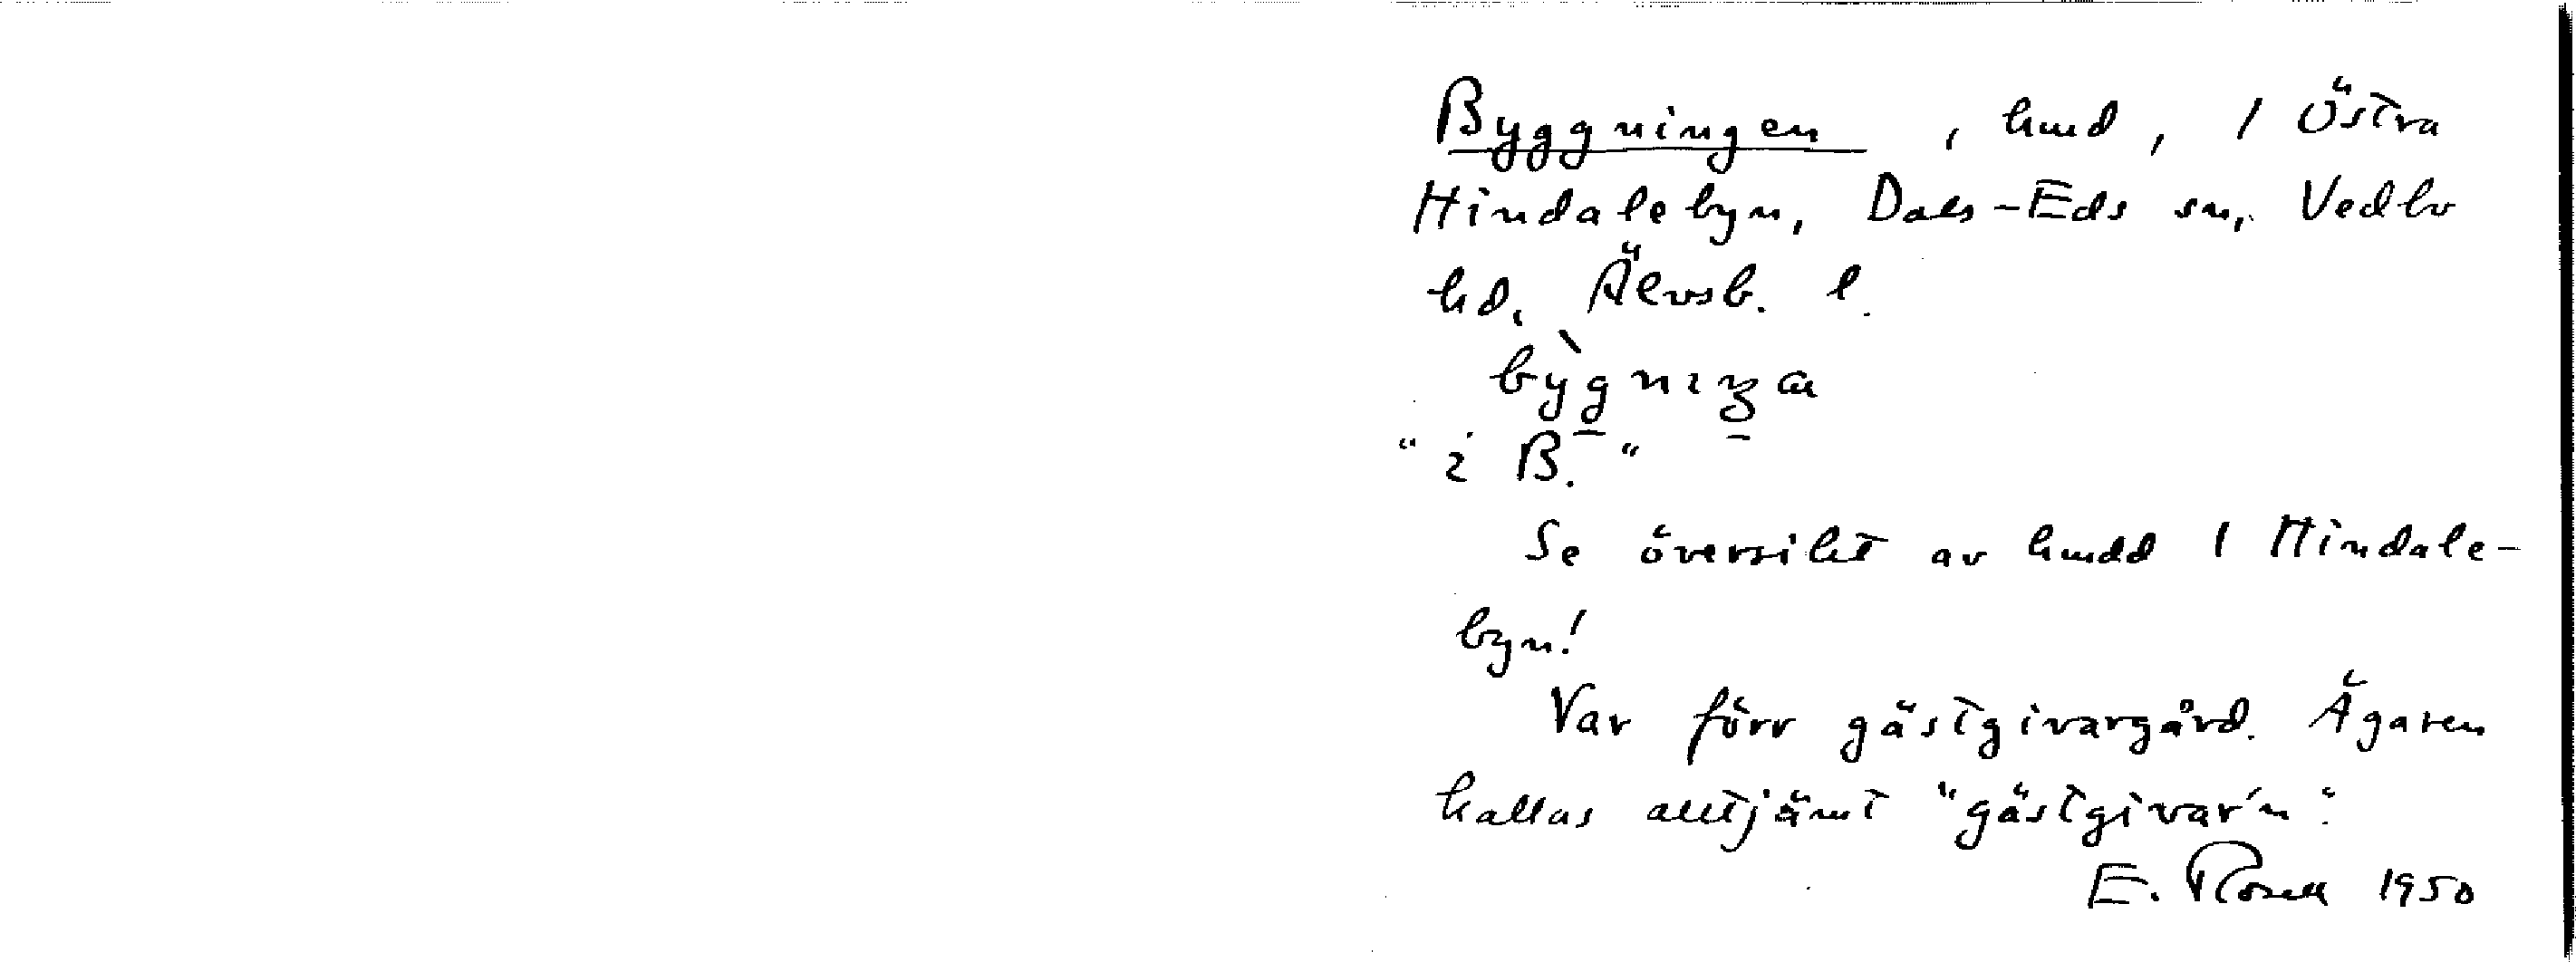 Byggningen, hmd, / Östra
Hindalebyn, Dals-Eds sn, Vedbo
hd, Älvsb. l.
by̖gnıŋa
"i B."
Se översikt av hmdd / Hindale-
byn!
Var förr gästgivargård. Ägaren
kallas alltjämt "gästgivar'n".
E. Rosell 1950